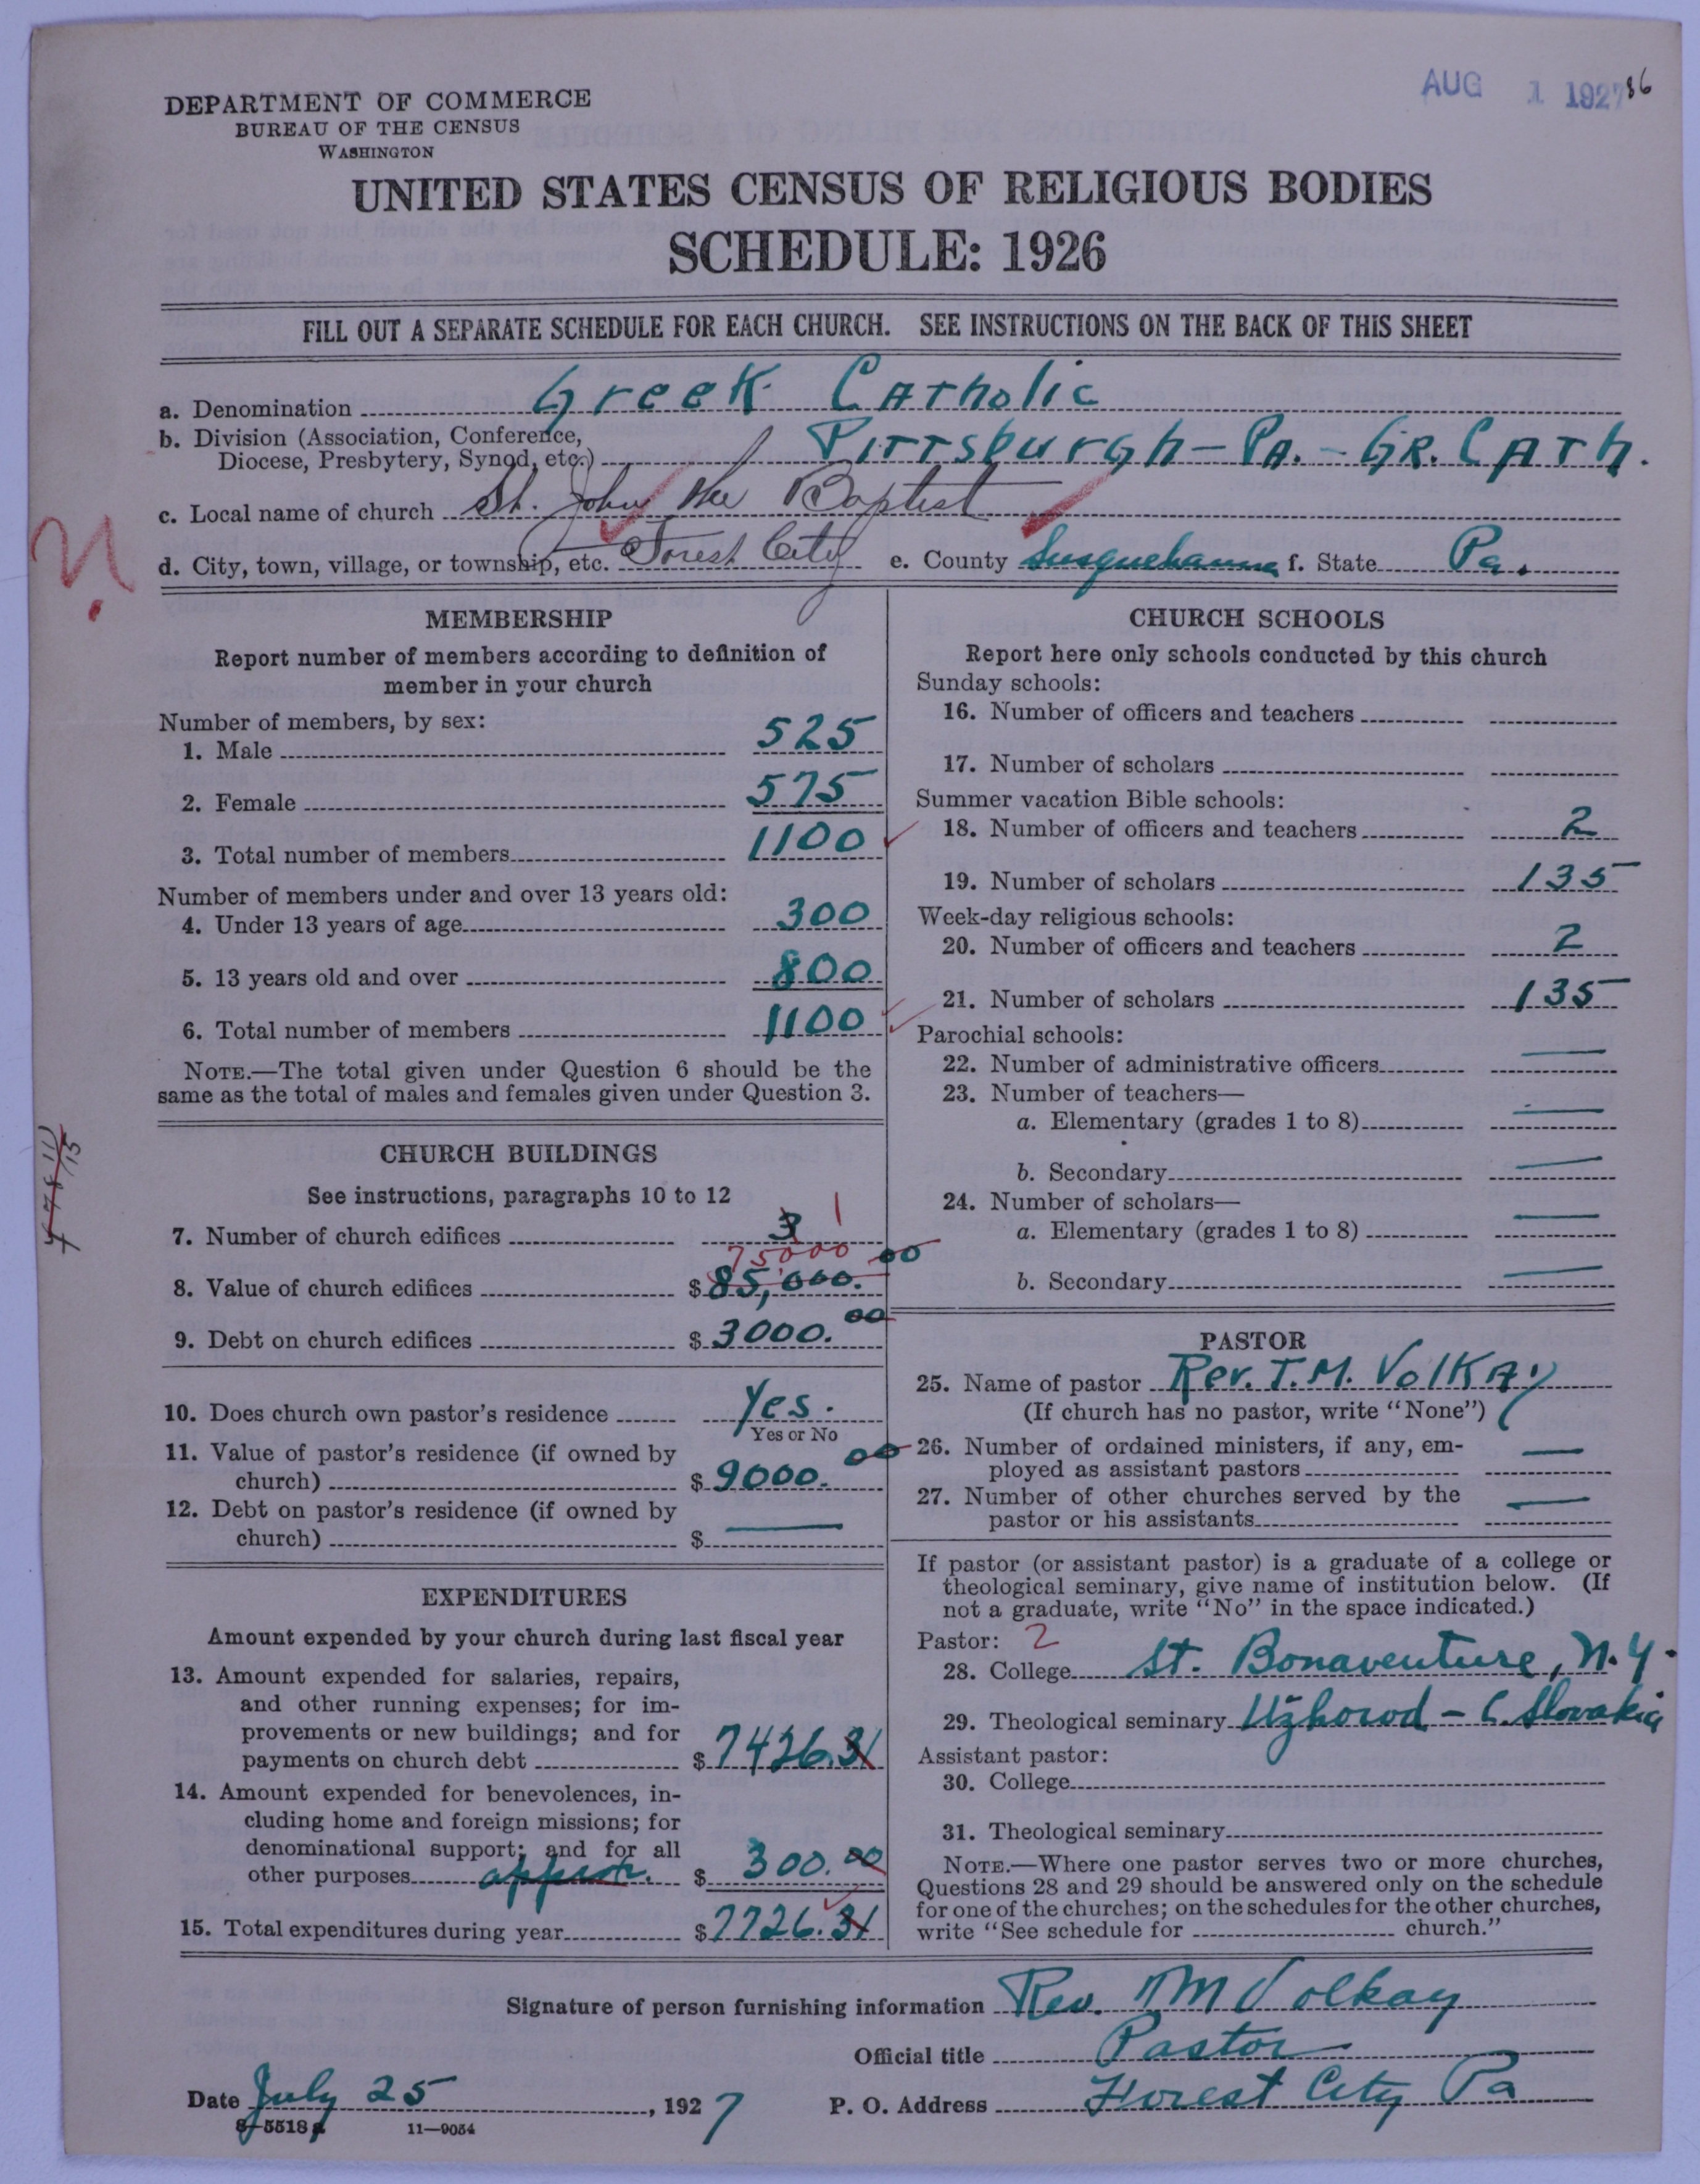 AUG 1 1927 86
DEPARTMENT OF COMMERCE
BUREAU OF THE CENSUS
WASHINGTON
UNITED STATES CENSUS OF RELIGIOUS BODIES
SCHEDULE: 1926
FILL OUT A SEPARATE SCHEDULE FOR EACH CHURCH. SEE INSTRUCTIONS ON THE BACK OF THIS SHEET
a. Denomination Greek Catholic
b. Division (Association, Conference,
Diocese, Presbytery, Synod, etc.) Pittsburgh-Pa.-Gr. Cath.
c. Local name of church St. John the Baptist
d. City, town, village, or township, etc. Forest City e. County Susquehanna f. State Pa.
MEMBERSHIP
Report number of members according to definition of
member in your church
Number of members, by sex:
1. Male 525
2. Female 575
3. Total number of members 1100
Number of members under and over 13 years old:
4. Under 13 years of age 300
5. 13 years old and over 800
6. Total number of members 1100
NOTE.—The total given under Question 6 should be the
same as the total of males and females given under Question 3.
CHURCH BUILDINGS
See instructions, paragraphs 10 to 12
7. Number of church edifices 3 1
75000
8. Value of church edifices $85,000.00
9. Debt on church edifices $3000.00
10. Does church own pastor's residence Yes.
Yes or No
11. Value of pastor's residence (if owned by
church) $9000.00
12. Debt on pastor's residence (if owned by
church) $ —
EXPENDITURES
Amount expended by your church during last fiscal year
13. Amount expended for salaries, repairs,
and other running expenses; for im-
provements or new buildings; and for
payments on church debt $7426.31
14. Amount expended for benevolences, in-
cluding home and foreign missions; for
denominational support; and for all
other purposes approx. $300.00
15. Total expenditures during year $7726.31
CHURCH SCHOOLS
Report here only schools conducted by this church
Sunday schools:
16. Number of officers and teachers
17. Number of scholars
Summer vacation Bible schools:
18. Number of officers and teachers 2
19. Number of scholars 135
Week-day religious schools:
20. Number of officers and teachers 2
21. Number of scholars 135
Parochial schools:
22. Number of administrative officers —
23. Number of teachers—
a. Elementary (grades 1 to 8) —
b. Secondary —
24. Number of scholars—
a. Elementary (grades 1 to 8) —
b. Secondary —
PASTOR
25. Name of pastor Rev. T. M. Volkay
(If church has no pastor, write "None")
26. Number of ordained ministers, if any, em-
ployed as assistant pastors —
27. Number of other churches served by the
pastor or his assistants —
If pastor (or assistant pastor) is a graduate of a college or
theological seminary, give name of institution below. (If
not a graduate, write "No" in the space indicated.)
Pastor: 2
28. College St. Bonaventure, N.Y.
29. Theological seminary Uzhorod - C. Slovakia
Assistant pastor:
30. College
31. Theological seminary
NOTE.—Where one pastor serves two or more churches,
Questions 28 and 29 should be answered only on the schedule
for one of the churches; on the schedules for the other churches,
write "See schedule for church."
Signature of person furnishing information Rev. T M Volkay
Official title Pastor
Date July 25, 1927 P. O. Address Forest City Pa
8-5518a 11—9054